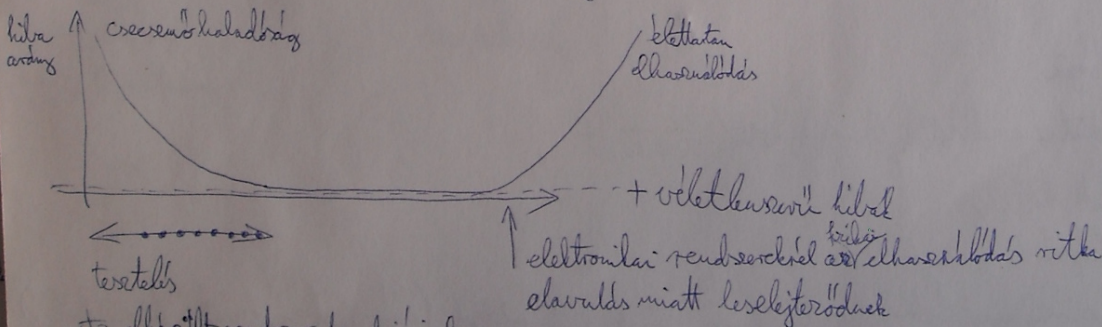 hiba
arány
csecsemőhaladóság
élettartam
elhasználódás
+ véletlenszerű hibák
tesztelés
fizikai
elektronikai rendszereknél az elhasználódás ritka
elavulás miatt leselejteződnek